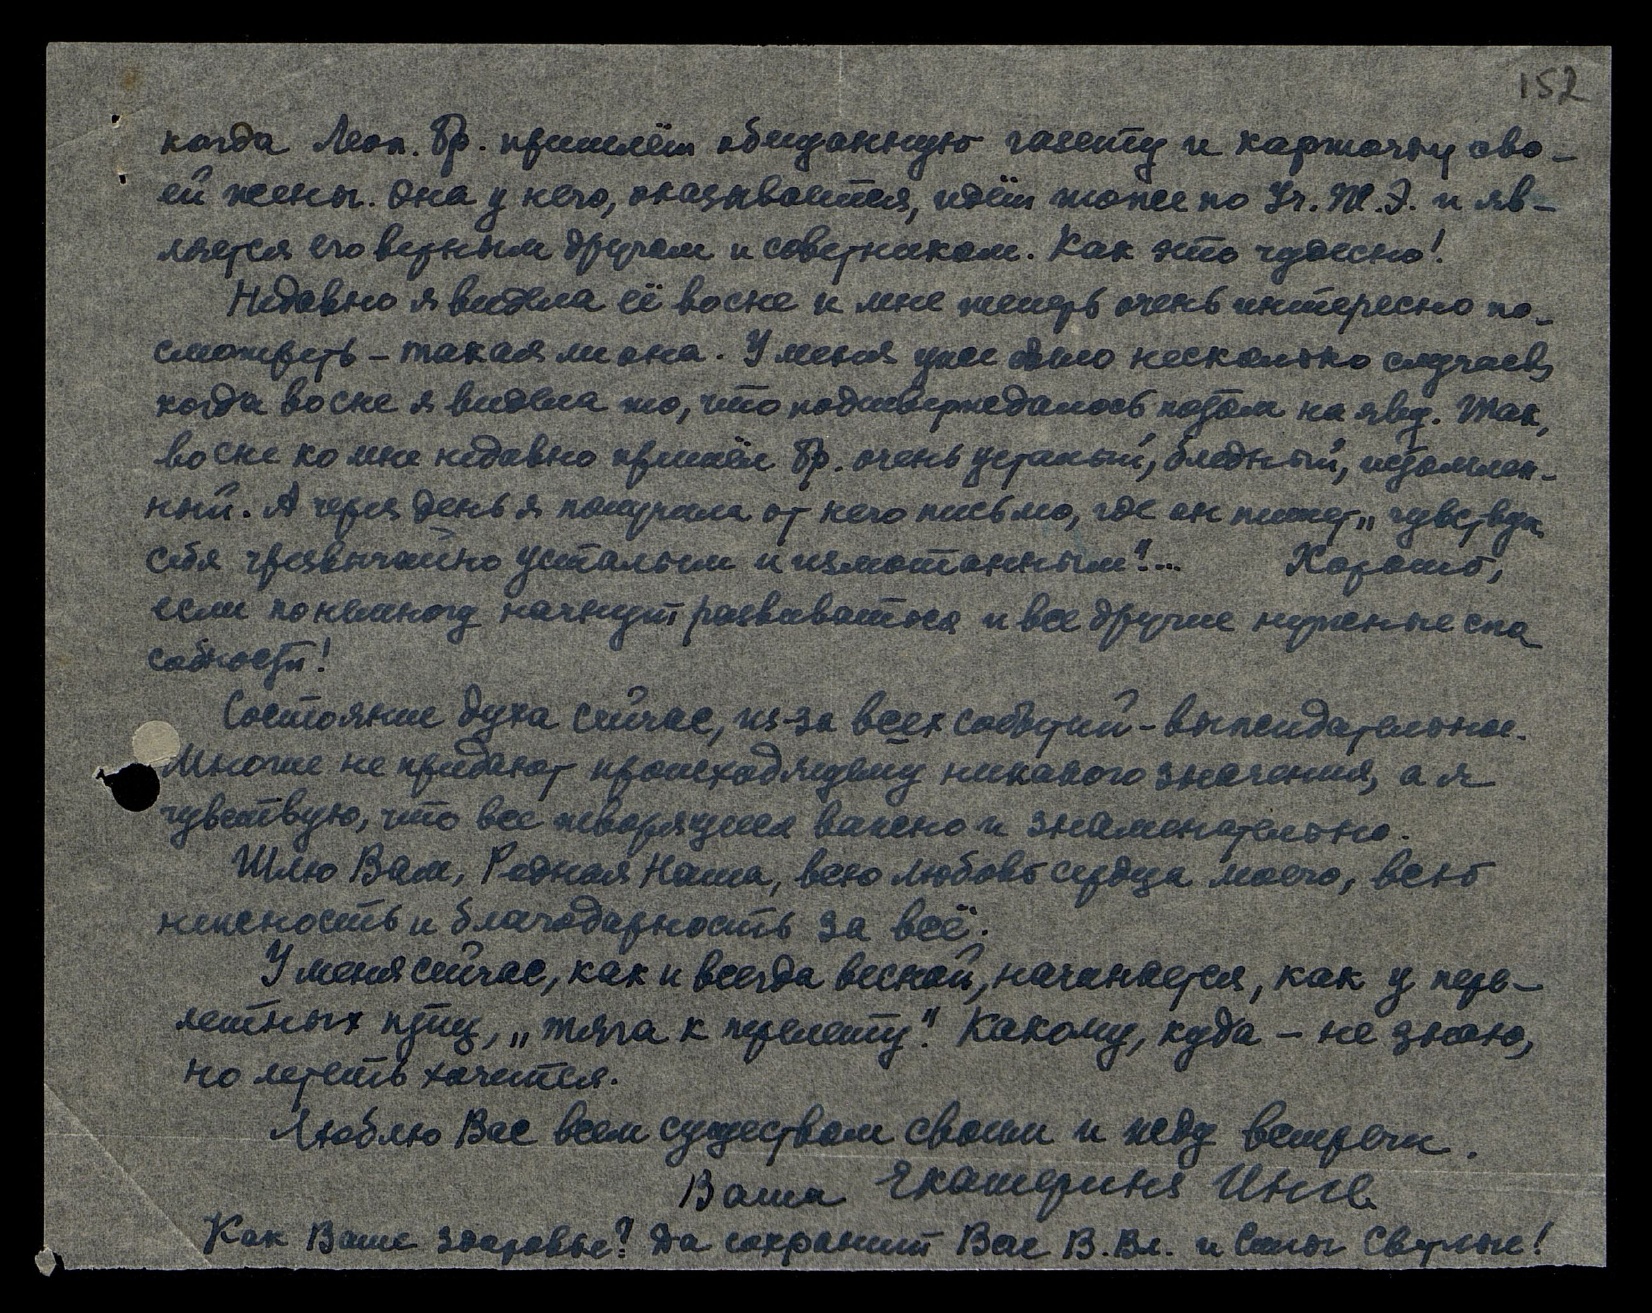 152
когда Леоп. Бр. пришлёт обещанную газету и карточку сво-
ей жены. Она у него, оказывается, идёт тоже по Уч. Ж. Э. и яв-
ляется его верным другом и советником. Как это чудесно!
Недавно я видела её во сне и мне теперь очень интересно по-
смотреть – такая ли она. У меня уже было несколько случаев,
когда во сне я видела то, что подтверждалось потом на яву. Так,
во сне ко мне недавно пришёл Бр. очень усталый, бледный, истомлен-
ный. А через день я получила от него письмо, где он пишет „чувствую
себя чрезвычайно усталым и измотанным"!... Хорошо,
если понемногу начнут развиваться и все другие нужные спо
собности!
Состояние духа сейчас, из-за всех событий – выжидательное.
Многие не придают происходящему никакого значения, а я
чувствую, что все творящееся важно и знаменательно.
Шлю Вам, Родная Наша, всю любовь сердца моего, всю
нежность и благодарность за всё.
У меня сейчас, как и всегда весной, начинается, как у пере-
летных птиц, „тяга к перелету". Какому, куда – не знаю,
но лететь хочется.
Люблю Вас всем существом своим и жду встречи.
Ваша Екатерина Инге.
Как Ваше здоровье? Да сохранит Вас В.Вл. и Силы Светлые!